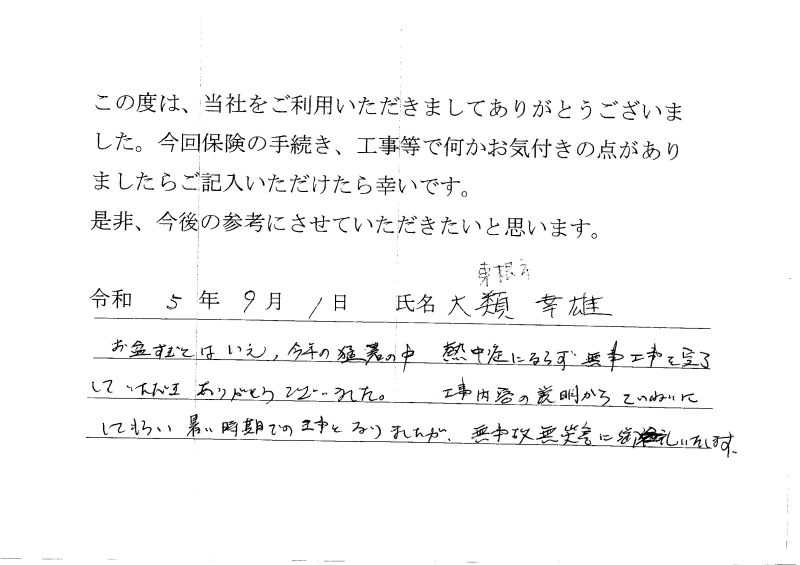 この度は、当社をご利用いただきましてありがとうございま
した。今回保険の手続き、工事等で何かお気付きの点があり
ましたらご記入いただけたら幸いです。
是非、今後の参考にさせていただきたいと思います。
東根市
令和 5年 9月 1日 氏名 大類 幸雄
お盆すぎとはいえ、今年の猛暑の中 熱中症にならず無事工事を完了
していただき ありがとうございました。 工事内容の説明からていねいに
してもらい 暑い時期での工事となりましたが、無事故無災害に御礼いたします。